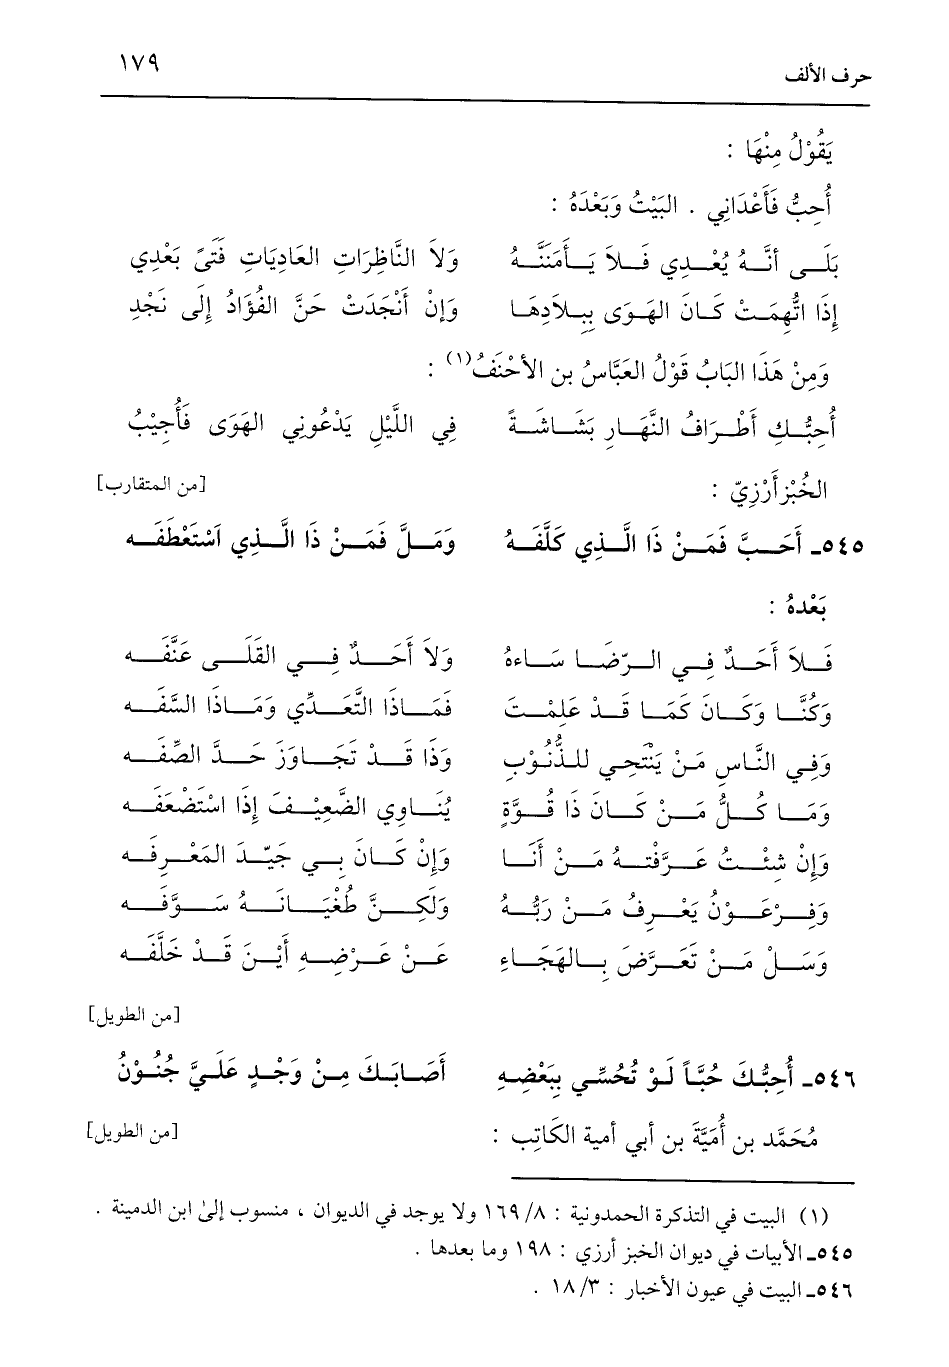 حرف الألف ١٧٩
يَقُوْلُ مِنْهَا :
أُحِبُّ فَأَعْدَانِي . البَيْتُ وَبَعْدَهُ :
بَلَى أنَّهُ يُعْدِي فَلاَ يَأمَنَنَّهُ وَلاَ النَّاظِرَاتِ العَادِيَاتِ فَتَىً بَعْدِي
إِذَا اتُّهِمَتْ كَانَ الهَوَى بِبِلاَدِهَا وَإِنْ أَنْجَدَتْ حَنَّ الفُؤَادُ إِلَى نَجْدِ
وَمِنْ هَذَا البَابُ قَوْلُ العَبَّاسُ بن الأحْنَفُ(١) :
أُحِبُّكِ أَطْرَافُ النَّهَارِ بَشَاشَةً فِي اللَّيْلِ يَدْعُونِي الهَوَى فَأُجِيْبُ
الخُبْزأَرْزِيّ : [من المتقارب]
٥٤٥ـ أحَبَّ فَمَنْ ذَا الَّذِي كَلَّفَهُ وَمَلَّ فَمَنْ ذَا الَّذِي اسْتَعْطَفَه
بَعْدهُ :
فَلاَ أحَدٌ فِي الرّضَا سَاءهُ وَلاَ أَحَدٌ فِي القَلَى عَنَّفَه
وَكُنَّا وَكَانَ كَمَا قَدْ عَلِمْتَ فَمَاذَا التَّعَدِّي وَمَاذَا السَّفَه
وَفِي النَّاسِ مَنْ يَنْتَحِي للذُّنُوْبِ وَذَا قَدْ تَجَاوَزَ حَدَّ الصِّفَه
وَمَا كُلُّ مَنْ كَانَ ذَا قُوَّةٍ يُنَاوِي الضَّعِيْفَ إِذَا اسْتَضْعَفَه
وَإِنْ شِئْتُ عَرَّفْتهُ مَنْ أنَا وَإِنْ كَانَ بِي جَيّدَ المَعْرِفَه
وَفِرْعَوْنُ يَعْرِفُ مَنْ رَبُّهُ وَلَكِنَّ طُغْيَانَهُ سَوَّفَه
وَسَلْ مَنْ تَعَرَّضَ بِالهَجَاءِ عَنْ عَرْضِهِ أَيْنَ قَدْ خَلَّفَه
[من الطويل]
٥٤٦ـ أُحِبُّكَ حُبَّاً لَوْ تُحُسِّي بِبَعْضِهِ أَصَابَكَ مِنْ وَجْدٍ عَلَيَّ جُنُوْنُ
مُحَمَّد بن أُمَيَّةَ بن أبي أمية الكَاتِب : [من الطويل]
(١) البيت في التذكرة الحمدونية : ١٦٩/٨ ولا يوجد في الديوان ، منسوب إلىٰ ابن الدمينة .
٥٤٥ـ الأبيات في ديوان الخبز أرزي : ١٩٨ وما بعدها .
٥٤٦ـ البيت في عيون الأخبار : ١٨/٣ .